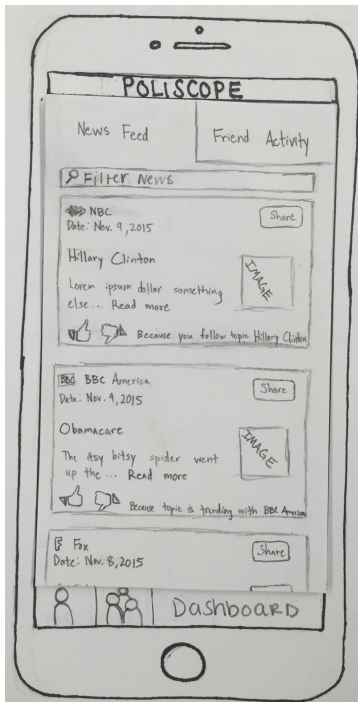 POLISCOPE
News Feed
Friend Activity
Filter News
NBC
Share
Date: Nov. 9, 2015
Hillary Clinton
IMAGE
Lorem ipsum dollar something
else... Read more
Because you follow topic Hillary Clinton
BBC BBC America
Share
Date: Nov. 9, 2015
Obamacare
IMAGE
The itsy bitsy spider went
up the... Read more
Because topic is trending with BBC America
F Fox
Share
Date: Nov. 8, 2015
Dashboard